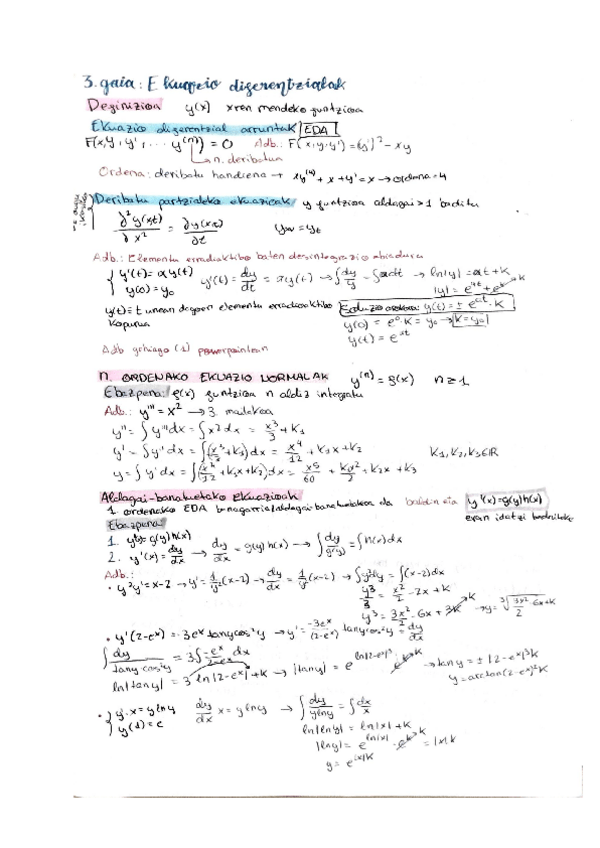 3. gaia: Ekuazio diferentzialak
Definizioa y(x) x-ren mendeko funtzioa
Ekuazio diferentzial arruntak EDA
F(x,y,y',... y⁽ⁿ⁾) = 0 Adb.: F(x,y,y') = (y')² - xy
n. deribatua
Ordena: deribatu handiena → xy⁽⁴⁾ + x + y' = x → ordena = 4
Deribatu partzialeko ekuazioak y funtzioa aldagai > 1 baditu
∂²y(x,t)/∂x² = ∂y(x,t)/∂t yₓₓ = yₜ
Adb.: Elementu erradiaktibo baten desintegrazio abiadura
{ y'(t) = αy(t) y'(t) = dy/dt = αy(t) → ∫dy/y = ∫αdt → ln|y| = αt + K
y(0) = y₀ |y| = e^αt + e^K
y(t) = t unean dagoen elementu erradiaktibo kopurua
y(t) = ± e^αt · K
y(0) = e⁰ · K = y₀ → K = y₀
y(t) = e^αt
Adb gehiago (1) powerpointean
n. ORDENAKO EKUAZIO NORMALAK y⁽ⁿ⁾ = f(x) n ≥ 1
Ebazpena: f(x) funtzioa n aldiz integratu
Adb.: y''' = x² → 3. mailakoa
y'' = ∫y'''dx = ∫x²dx = x³/3 + K₁
y' = ∫y''dx = ∫(x³/3 + K₁)dx = x⁴/12 + K₁x + K₂ K₁,K₂,K₃∈ℝ
y = ∫y'dx = ∫(x⁴/12 + K₁x + K₂)dx = x⁵/60 + K₁x²/2 + K₂x + K₃
Aldagai-banatuetako ekuazioak
1. ordenako EDA banagarria/aldagai-banatuetakoa da baldin eta y'(x) = g(y)h(x)
eran idatzi badaiteke
Ebazpena:
1. y' = g(y)h(x)
2. y'(x) = dy/dx → dy/dx = g(y)h(x) → ∫dy/g(y) = ∫h(x)dx
Adb.:
• y²y' = x-2 → y' = 1/y²(x-2) → dy/dx = 1/y²(x-2) → ∫y²dy = ∫(x-2)dx
y³/3 = x²/2 - 2x + K
y³ = 3x²/2 - 6x + 3K → K → y = ³√(3x²/2 - 6x + K)
• y'(2-eˣ) = -3eˣ tany cos²y → y' = -3eˣ/(2-eˣ) tany cos²y = dy/dx
∫dy/(tany cos²y) = 3∫-eˣ/(2-eˣ) dx
ln|tany| = 3 ln|2-eˣ| + K → |tany| = e^(ln|2-eˣ|³) · e^K K → tany = ±|2-eˣ|³K
y = arctan(2-eˣ)³K
• { y'·x = y lny dy/dx x = y lny → ∫dy/(y lny) = ∫dx/x
y(1) = e ln|lny| = ln|x| + K
|lny| = e^(ln|x|) · e^K K = |x|·K
y = e^(|x|K)